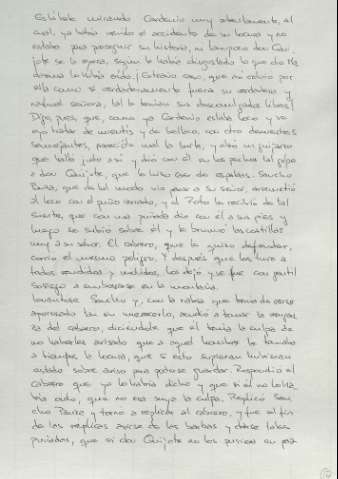 Estábale mirando Cardenio muy atentamente, al
cual ya había venido el accidente de su locura y no
estaba para proseguir su historia, ni tampoco don Qui-
jote se la oyera, según le había disgustado lo que de Ma-
dasima le había oído. ¡Extraño caso, que así volvió por
ella como si verdaderamente fuera su verdadera y
natural señora, tal le tenían sus descomulgados libros!
Digo, pues, que, como ya Cardenio estaba loco y se
oyó tratar de mentís y de bellaco, con otros denuestos
semejantes, parecióle mal la burla, y alzó un guijarro
que halló junto a sí y dio con él en los pechos tal golpe
a don Quijote, que le hizo caer de espaldas. Sancho
Panza, que de tal modo vio parar a su señor, arremetió
al loco con el puño cerrado, y el Roto le recibió de tal
suerte, que con una puñada dio con él a sus pies y
luego se subió sobre él y le brumó las costillas
muy a su sabor. El cabrero, que le quiso defender,
corrió el mesmo peligro. Y después que los tuvo a
todos rendidos y molidos, los dejó y se fue con gentil
sosiego a emboscarse en la montaña.
Levantóse Sancho y, con la rabia que tenía de verse
aporreado tan sin merecerlo, acudió a tomar la vengan-
za del cabrero, diciéndole que él tenía la culpa de
no haberles avisado que a aquel hombre le tomaba
a tiempos la locura, que si esto supieran hubieran
estado sobre aviso para poderse guardar. Respondió el
cabrero que ya lo había dicho y que si él no lo ha-
bía oído, que no era suya la culpa. Replicó San-
cho Panza y tornó a replicar el cabrero, y fue el fin
de las réplicas asirse de las barbas y darse tales
puñadas, que si don Quijote no los pusiera en paz